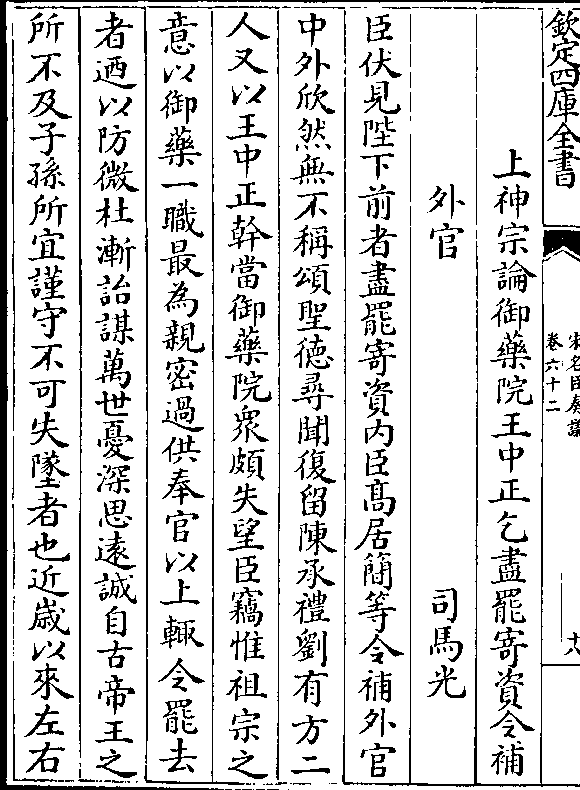 欽定四庫全書
宋名臣奏議
卷六十二
大
上神宗論御藥院王中正乞盡罷寄資令補
外官　司馬光
臣伏見陛下前者盡罷寄資内臣髙居簡等令補外官
中外欣然無不稱頌聖徳尋聞復留陳承禮劉有方二
人又以王中正幹當御藥院衆頗失望臣竊惟祖宗之
意以御藥一職最為親密過供奉官以上輙令罷去
者迺以防微杜漸詒謀萬世憂深思遠誠自古帝王之
所不及子孫所宜謹守不可失墜者也近歳以來左右